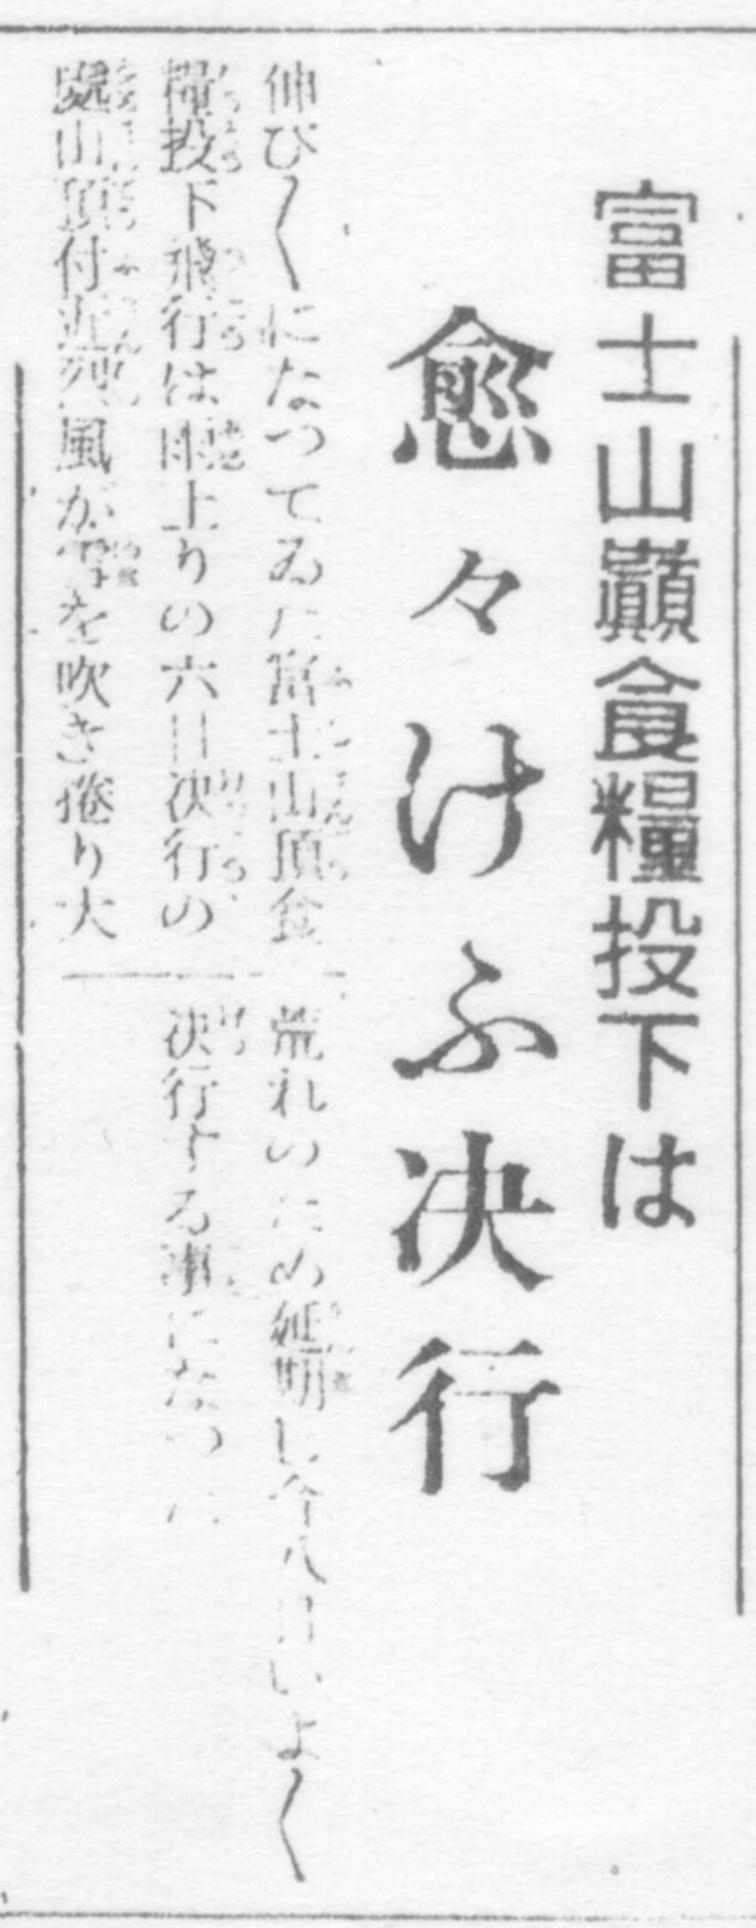 富士山巓食糧投下は
愈々けふ決行
伸び〳〵になつてゐた富士山頂食
糧投下飛行は雨上りの六日決行の
處山頂付近烈風が雪を吹き捲り大
荒れのため延期し今八日いよ〳〵
決行する事になつた